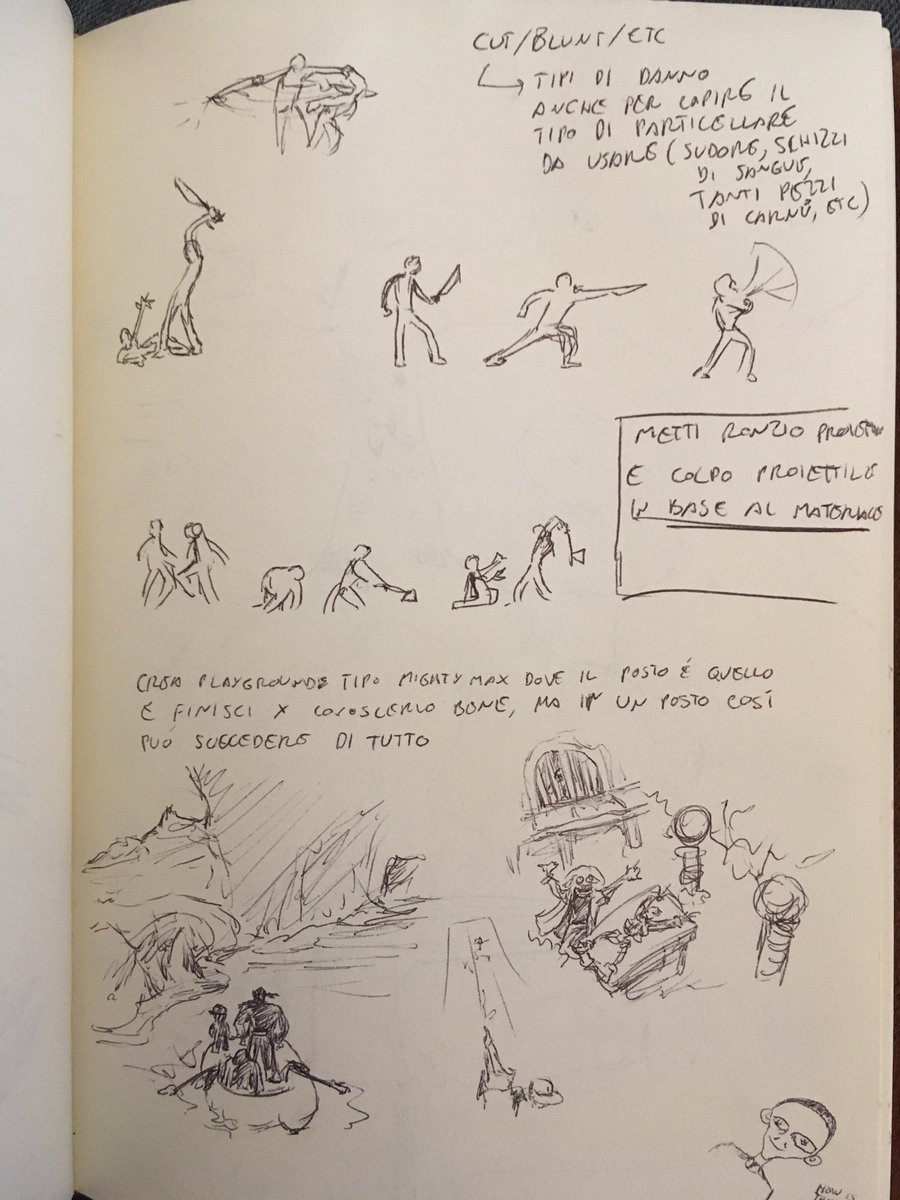 CUT/BLUNT/ETC
TIPI DI DANNO
ANCHE PER CAPIRE IL
TIPO DI PARTICELLARE
DA USARE (SUDORE, SCHIZZI
DI SANGUE,
TANTI PEZZI
DI CARNE, ETC)
METTI RONZIO PROIETTILE
E COLPO PROIETTILE
IN BASE AL MATERIALE
CREA PLAYGROUNDS TIPO MIGHTY MAX DOVE IL POSTO É QUELLO
E FINISCI X CONOSCERLO BENE, MA IN UN POSTO COSÍ
PUÓ SUCCEDERE DI TUTTO
HOW IS